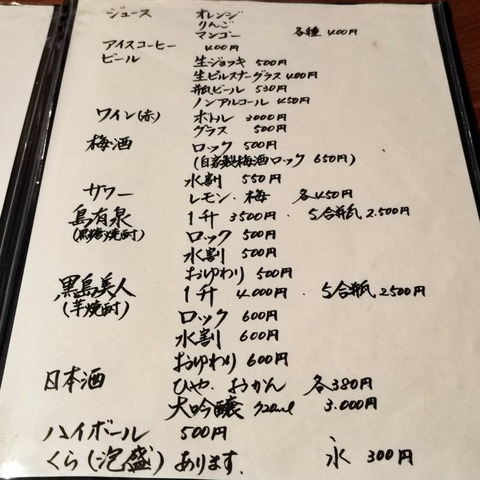 ジュース オレンジ
りんご 各種 400円
マンゴー
アイスコーヒー 400円
ビール 生ジョッキ 500円
生ピルスナーグラス 400円
瓶ビール 530円
ノンアルコール 450円
ワイン(赤) ボトル 3000円
グラス 500円
梅酒 ロック 500円
(自家製梅酒ロック 650円)
水割 550円
サワー レモン・梅 各450円
島有泉 1升 3500円 . 5合瓶 2.500円
(黒糖焼酎) ロック 500円
水割 500円
おゆわり 500円
黒島美人 1升 4.000円 . 5合瓶 2500円
(芋焼酎) ロック 600円
水割 600円
おゆわり 600円
日本酒 ひや. おかん 各380円
大吟醸 720ml 3.000円
ハイボール 500円
くら(泡盛)あります. 氷 300円